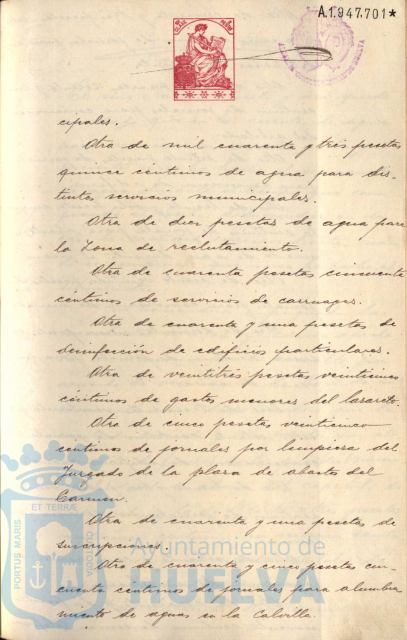 A.1.947.701*
cipales.
Otra de mil cuarenta y tres pesetas
quince céntimos de agua para dis-
tintos servicios municipales.
Otra de diez pesetas de agua para
la Zona de reclutamiento.
Otra de cuarenta pesetas cincuenta
céntimos de servicios de carruages.
Otra de cuarenta y una pesetas de
desinfección de edificios particulares.
Otra de veintitres pesetas veinticinco
céntimos de gastos menores del lazareto.
Otra de cinco pesetas veinticinco
centimos de jornales por limpieza del
Juzgado de la plaza de abastos del
Carmen.
Otra de cuarenta y una pesetas de
suscripciones.
Otra de cuarenta y cinco pesetas cin-
cuenta centimos de jornales para alumbra
miento de aguas en la Calvilla.
PORTUS MARIS
ET TERRÆ
CUSTODIA
Ayuntamiento de
HUELVA